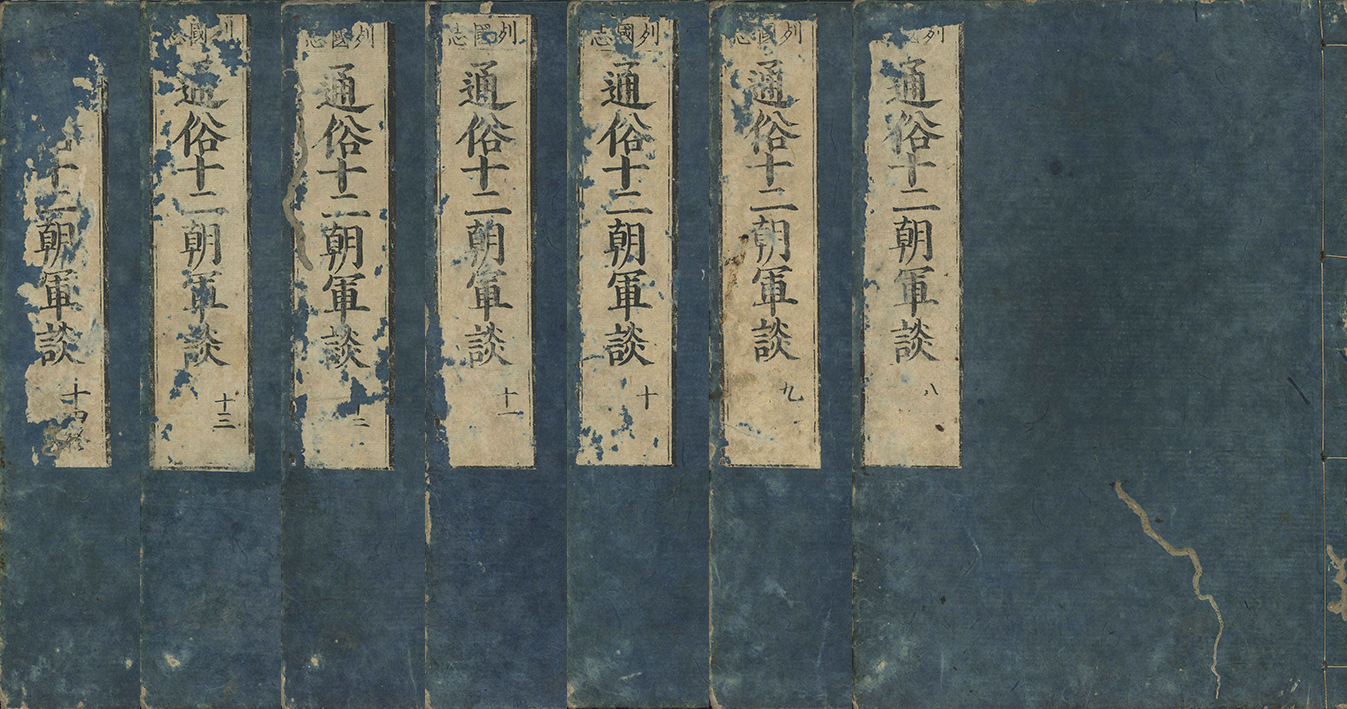 列國
通俗十二朝軍談
八
列國志
通俗十二朝軍談
九
列國志
通俗十二朝軍談
十
列國志
通俗十二朝軍談
十一
列國志
通俗十二朝軍談
十二
列國志
通俗十二朝軍談
十三
十二朝軍談
十四終